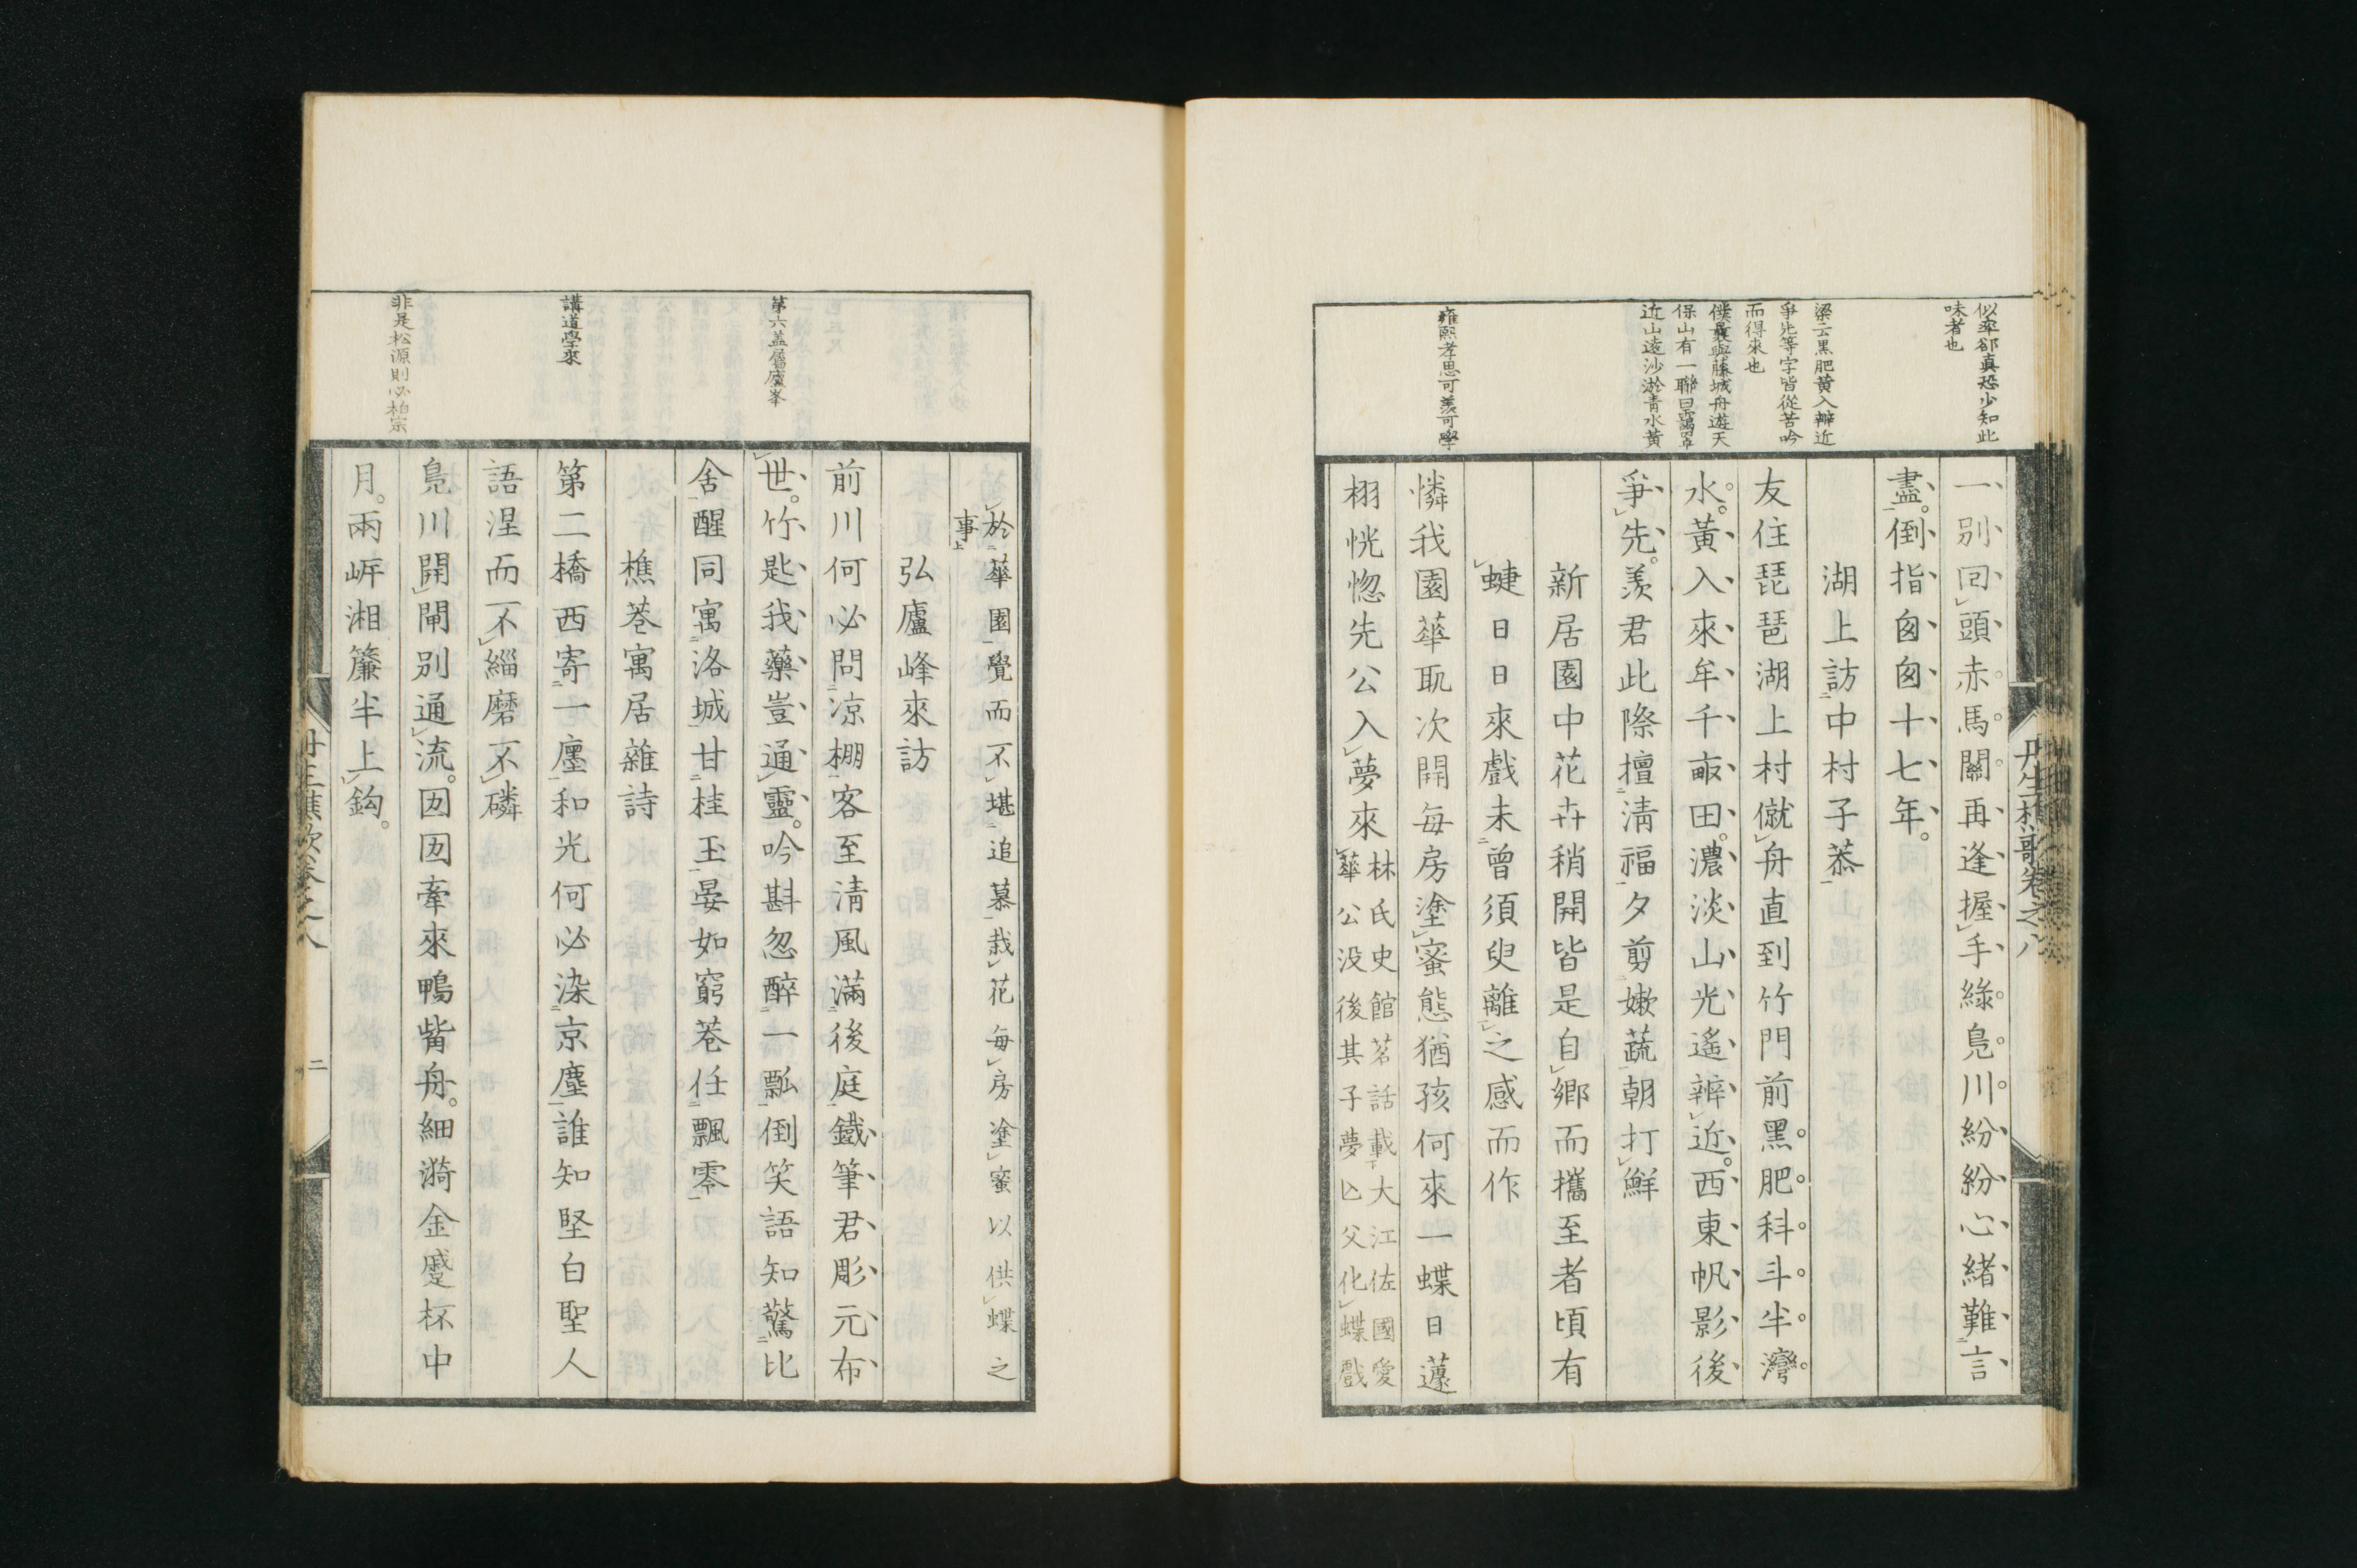 似率卻真恐少知此
味者也
梁云黒肥黃入辨近
爭先等字皆從苦吟
而得來也
僕曩與藤城舟遊天
保山有一聯曰靄罩
近山遠沙淤青水黃
雍熙孝思可羨可學
一別回頭赤馬關再逢握手綠鳧川紛紛心緒難言
盡倒指匆匆十七年
湖上訪中村子恭
友住琵琶湖上村僦舟直到竹門前黑肥科斗半灣
水黃入來牟千畝田濃淡山光遙辨近西東帆影後
爭先羨君此際擅淸福夕剪嫩蔬朝打鮮
新居園中花卉稍開皆是自鄉而攜至者頃有
蜨日日來戲未曾須臾離之感而作
憐我園華取次開每房塗蜜態猶孩何來一蝶日蘧
栩恍惚先公入夢來
林氏史館茗話載大江佐國愛
華公沒後其子夢亡父化蝶戲
丹生樵歌卷之八
於華園覺而不堪追慕栽花每房塗蜜以供蝶之
事
弘廬峰來訪
前川何必問涼棚客至淸風滿後庭鐵筆君彫元布
世竹匙我藥豈通靈吟斟忽醉一瓢倒笑語知驚比
舍醒同寓洛城甘桂玉晏如窮巷任飄零
樵巷寓居雜詩
第二橋西寄一廛和光何必染京塵誰知堅白聖人
語涅而不緇磨不磷
鳧川開閘別通流囡囡牽來鴨觜舟細漪金蹙杯中
月兩岸湘簾半上鈎
第六蓋屬廬峯
講道學來
非是松源則必柏宗
丹生樵歌卷之八
二